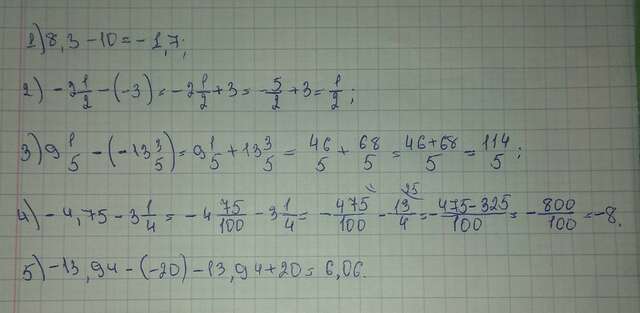 1) 8,3 - 10 = - 1,7;
2) - 2 1/2 - (-3) = - 2 1/2 + 3 = - 5/2 + 3 = 1/2;
3) 9 1/5 - (-13 3/5) = 9 1/5 + 13 3/5 = 46/5 + 68/5 = 46+68/5 = 114/5;
4) - 4,75 - 3 1/4 = - 4 75/100 - 3 1/4 = - 475/100 - 13/4 25 = - 475-325/100 = - 800/100 = -8.
5) -13,94 - (-20) - 13,94 + 20 = 6,06.